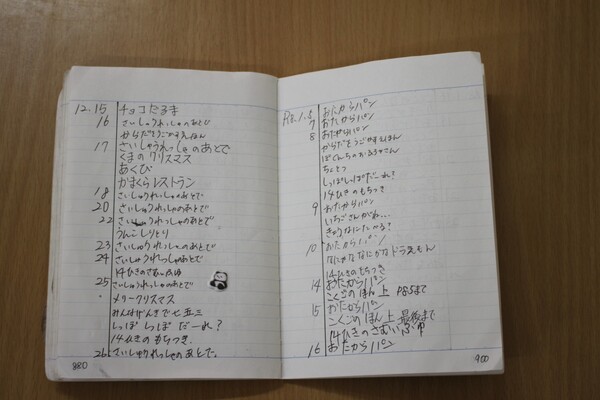 12.15 チョコだるま
16 さいしゅうれっしゃのあとで
からだをうごかすえほん
17 さいしゅうれっしゃのあとで
くまのクリスマス
あくび
かまくらレストラン
18 さいしゅうれっしゃのあとで
20 さいしゅうれっしゃのあとで
22 さいしゅうれっしゃのあとで
うんこしりとり
23 さいしゅうれっしゃのあとで
24 さいしゅうれっしゃのあとで
14ひきのさむいふゆ
25 さいしゅうれっしゃのあとで
メリークリスマス
みんなげんきで七五三
しっぽ しっぽ だーれ?
14ひきの もちつき
26 さいしゅうれっしゃのあとで
880
1.5 おたからパン
7 おたからパン
8 おたからパン
からだをうごかすえほん
ちょとつ
しっぽしっぽだーれ?
14ひきのもちつき
9 おたからパン
いちごさんがね…
きゅうなにたべる?
10 おたからパン
なにかななにかなドラえもん
14ひきのもちつき
14 おたからパン
こくごのほん上 P85まで
15 おたからパン
こくごのほん上 最後まで
14ひきのさむいふゆ
16 おたからパン
900